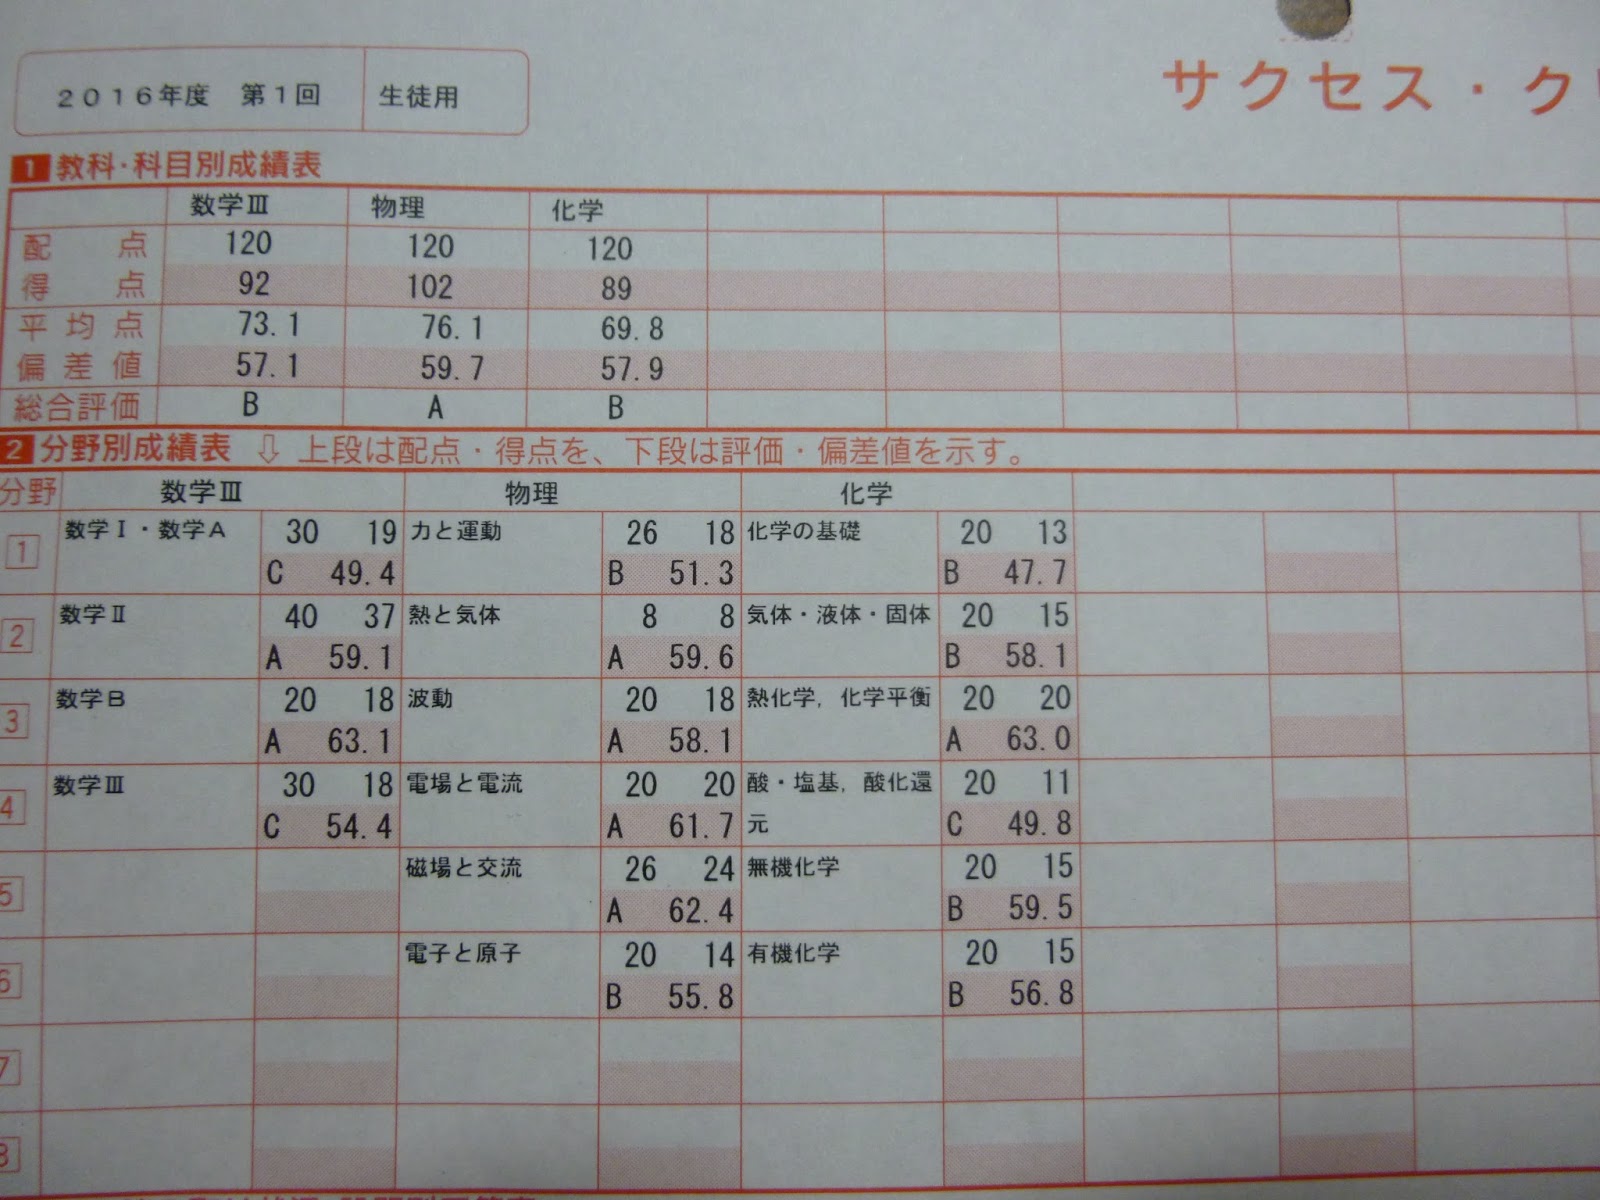 2016年度 第1回 生徒用
サクセス・ク
1 教科・科目別成績表
数学Ⅲ 物理 化学
配点 120 120 120
得点 92 102 89
平均点 73.1 76.1 69.8
偏差値 57.1 59.7 57.9
総合評価 B A B
2 分野別成績表 ⇩ 上段は配点・得点を、下段は評価・偏差値を示す。
分野 数学Ⅲ 物理 化学
1 数学Ⅰ・数学A 30 19 力と運動 26 18 化学の基礎 20 13
C 49.4 B 51.3 B 47.7
2 数学Ⅱ 40 37 熱と気体 8 8 気体・液体・固体 20 15
A 59.1 A 59.6 B 58.1
3 数学B 20 18 波動 20 18 熱化学，化学平衡 20 20
A 63.1 A 58.1 A 63.0
4 数学Ⅲ 30 18 電場と電流 20 20 酸・塩基，酸化還 20 11
C 54.4 A 61.7 元 C 49.8
5 磁場と交流 26 24 無機化学 20 15
A 62.4 B 59.5
6 電子と原子 20 14 有機化学 20 15
B 55.8 B 56.8
7
8